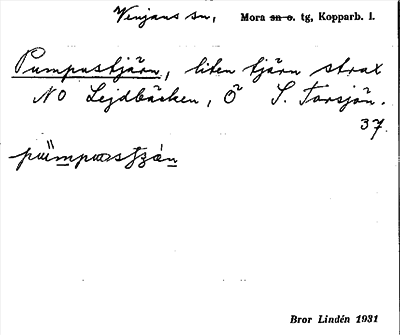 Venjans sn, Mora sn o. tg, Kopparb. l.
Pumpustjärn, liten tjärn strax
NO Lejdbäcken, Ö S. Torsjön.
37.
Bror Lindén 1931